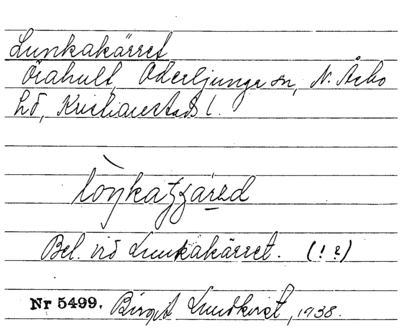 Lunkakärret
Örahult, Oderljunga sn, N. Åsbo
hd, Kristianstads l.
Bel. vid Lunkakärret. (! ?)
Nr 5499. Birgit Lundkvist, 1938.